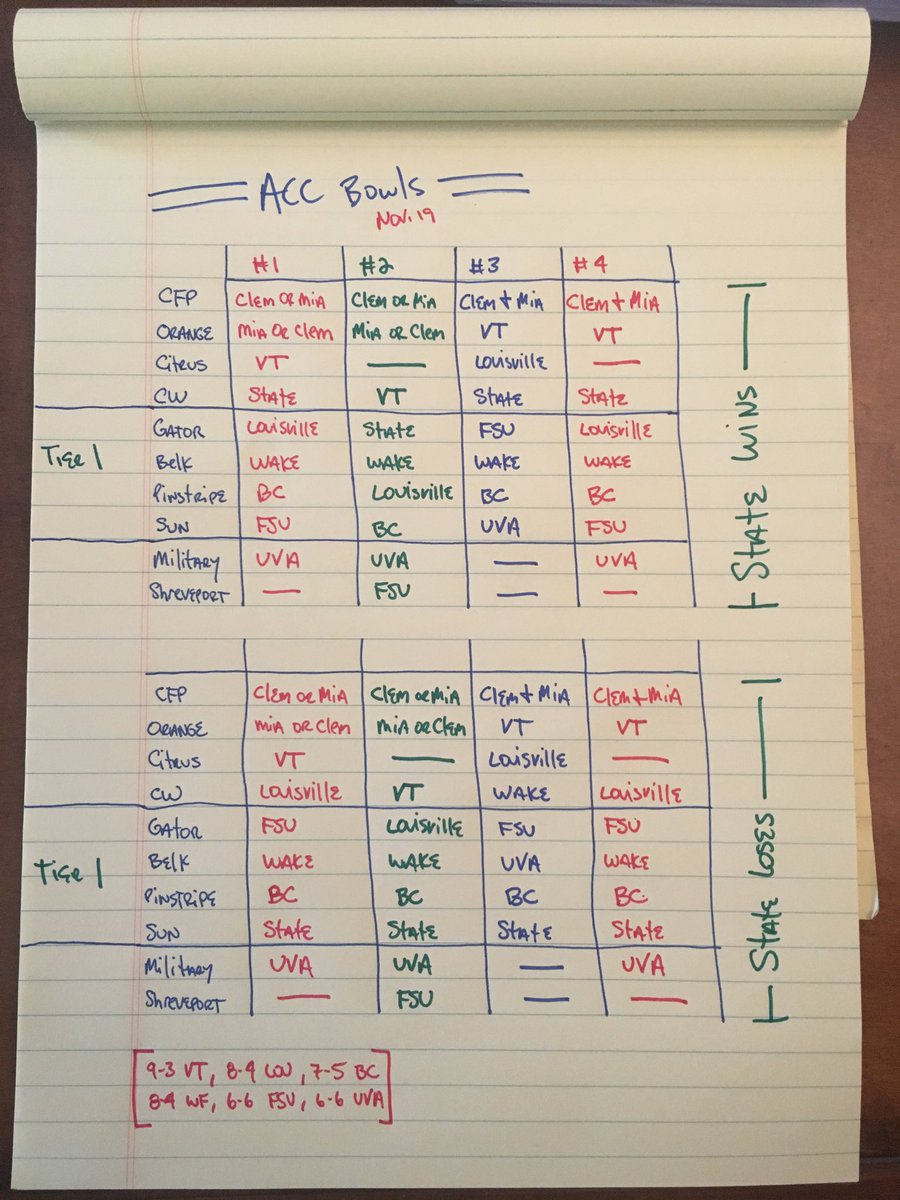 ACC Bowls
Nov. 19
#1 #2 #3 #4
CFP Clem or Mia Clem or Mia Clem + Mia Clem + Mia
Orange Mia or Clem Mia or Clem VT VT
Citrus VT — Louisville —
CW State VT State State
Gator Louisville State FSU Louisville
Tier 1
Belk Wake Wake Wake Wake
Pinstripe BC Louisville BC BC
Sun FSU BC UVA FSU
Military UVA UVA — UVA
Shreveport — FSU — —
State Wins
CFP Clem or Mia Clem or Mia Clem + Mia Clem + Mia
Orange Mia or Clem Mia or Clem VT VT
Citrus VT — Louisville —
CW Louisville VT Wake Louisville
Gator FSU Louisville FSU FSU
Tier 1
Belk Wake Wake UVA Wake
Pinstripe BC BC BC BC
Sun State State State State
Military UVA UVA — UVA
Shreveport — FSU — —
State Loses
9-3 VT, 8-4 Lou, 7-5 BC
8-4 WF, 6-6 FSU, 6-6 UVA